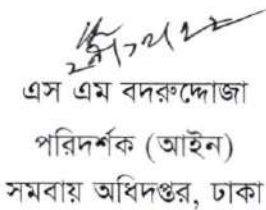 এস এম বদরুদ্দোজা
পরিদর্শক (আইন)
সমবায় অধিদপ্তর, ঢাকা